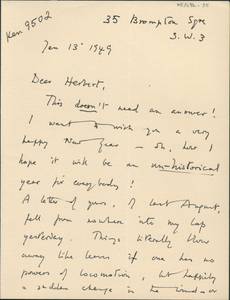 Ken 9502
35 Brompton Sqre
S.W.3
Jan 13th 1949
Dear Herbert,
This doesn't need an answer!
I want to wish you a very
happy New Year - oh, how I
hope it will be an un-historical
year for everybody!
A letter of yours, of last August,
fell from nowhere into my lap
yesterday. Things literally blow
away like leaves if one has no
powers of locomotion, but happily
a sudden change in the wind - or